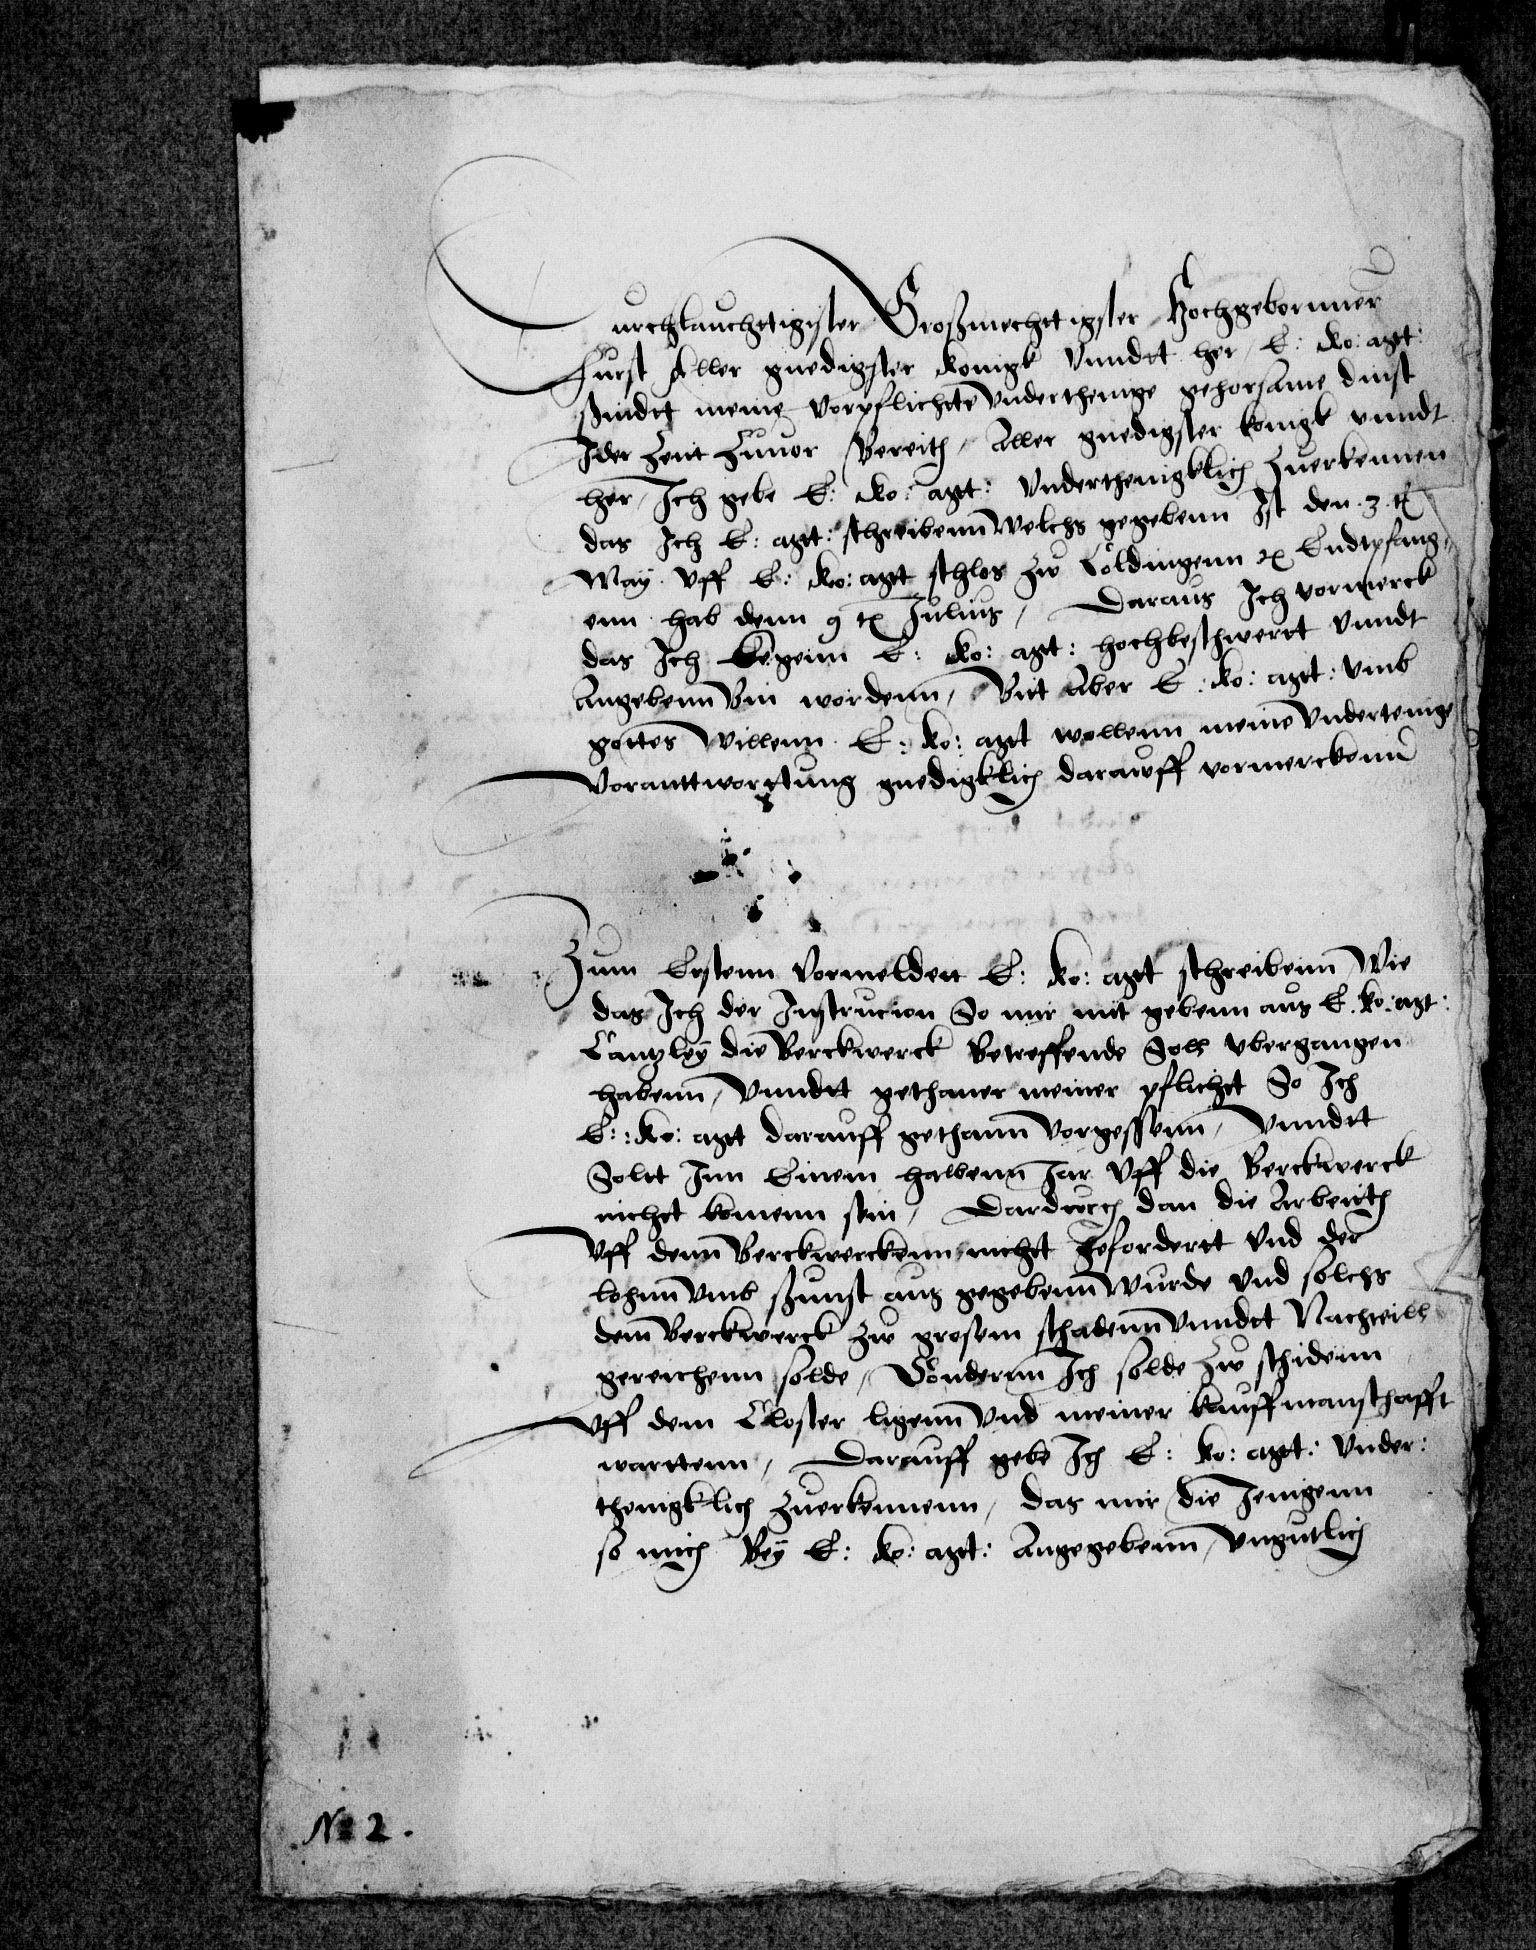 Durchlauchttigister Großmechttigster Hochgebornner
Furst Aller gnedigster Konigk Vnndtt her, E: Ko: agt:
ßindtt meine vorpflichtte Vnderthenige gehorsame dinst
Ider Zeit Zuuor Bereith, Aller gnedigster konigk vnndt
her, Ich gebe E: Ko: agt: Vnderthenigklich Zuerkennen
das Ich E: agt: schreibenn Welchs gegebenn Ist den 3 t
May Vff E: Ko: agt schlos zw Coldingenn Endtpfang,,
enn hab denn 9 t Julius, Daraus Ich vormerck
das Ich kegenn E: Ko: agt: hochbeschwertt Vnndt
Angebenn Bin wordenn, Bit Aber E: Ko: agt: vmb
gottes Willenn E: Ko: agt wollenn meine Vndertenige
Voranttworttung gnedigklich darauff vormerckenn
Zum Erstenn Vormeldett E: Ko: agt schreibenn Wie
das Ich der Instrucion So mir mit gebenn aus E. Ko: agt:
Cantzley die Berckwerck Betreffende Soll vbergangen
habenn, Vnndtt gethaner meiner pflicht So Ich
E: Ko: agt darauff gethann Vorgessenn, Vnndtt
Soltt Inn Einem halbenn Jar Vff die Berckwerck
nichtt komenn sein, Dardurch dan die Arbeith
Vff denn Berckwerckenn nichtt gefordertt Vnd der
lohnn Vmb ßunst aus gegebenn Wurde Vnd solchs
dem Berckwerck zw grosem schadenn Vnndtt Nachteill
gereichenn solde, Sonderenn Ich solde zw schidenn
Vff dem Closter ligenn Vnd meiner kauffmanschafft
warttenn, Darauff gebe Ich E: Ko: agt: Vnder:
thenigklich Zuerkennenn, das mir die Jenigenn
so mich Bey E: Ko: agt: Angegebenn, Vngutlich
No 2.